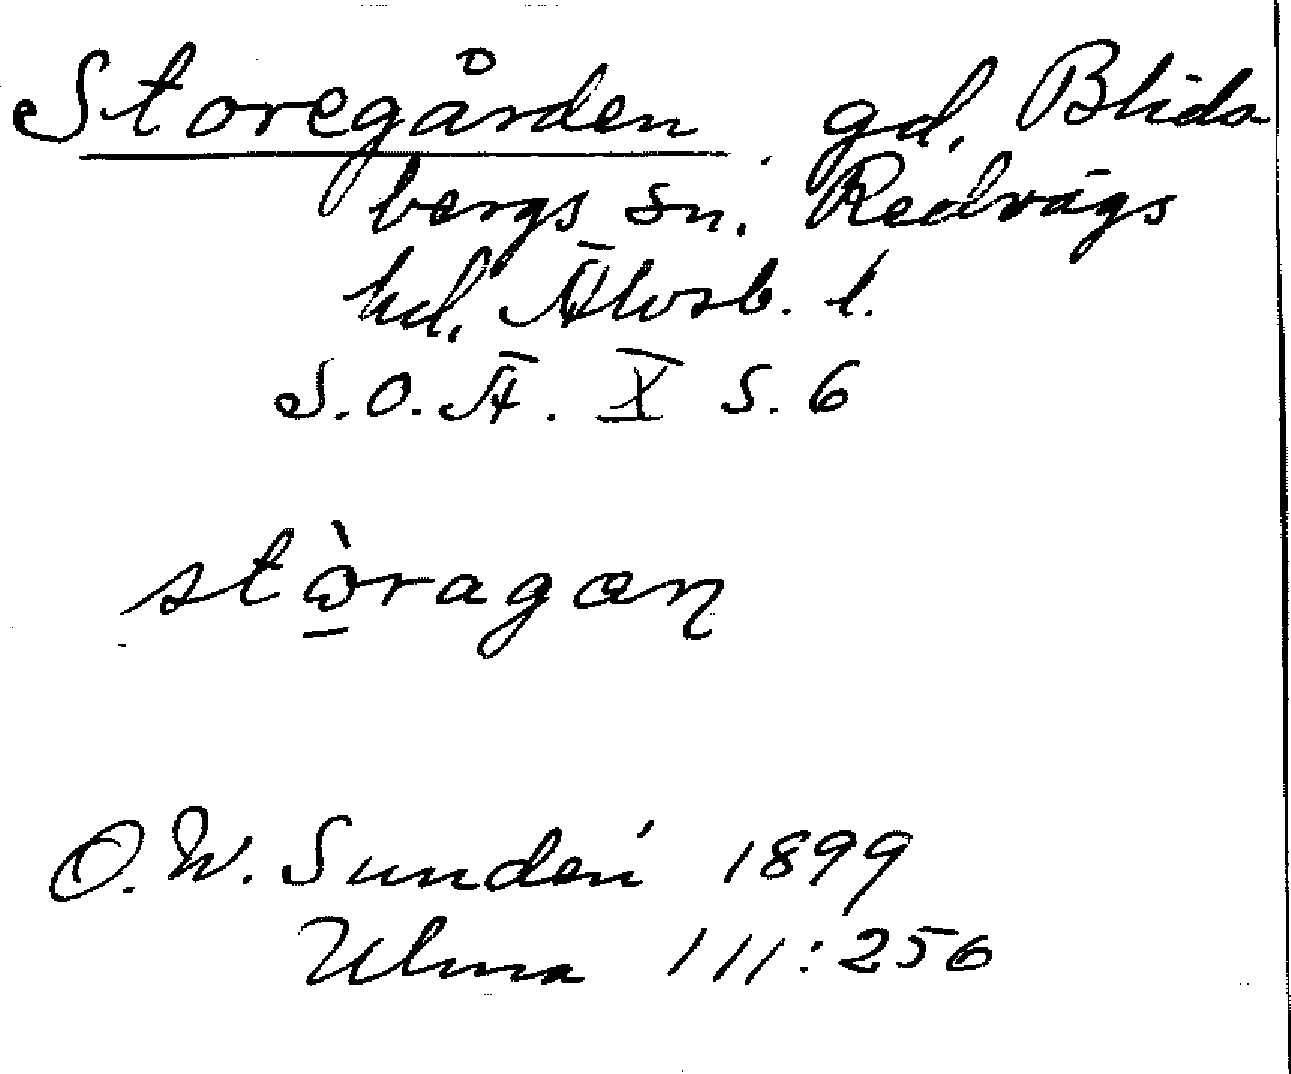 Storegården gd. Blids-
bergs sn. Redvägs
hd. Älvsb. l.
S.O.Ä. X S. 6
stò̱ragæn
O. W. Sundén 1899
Ulma 111:256